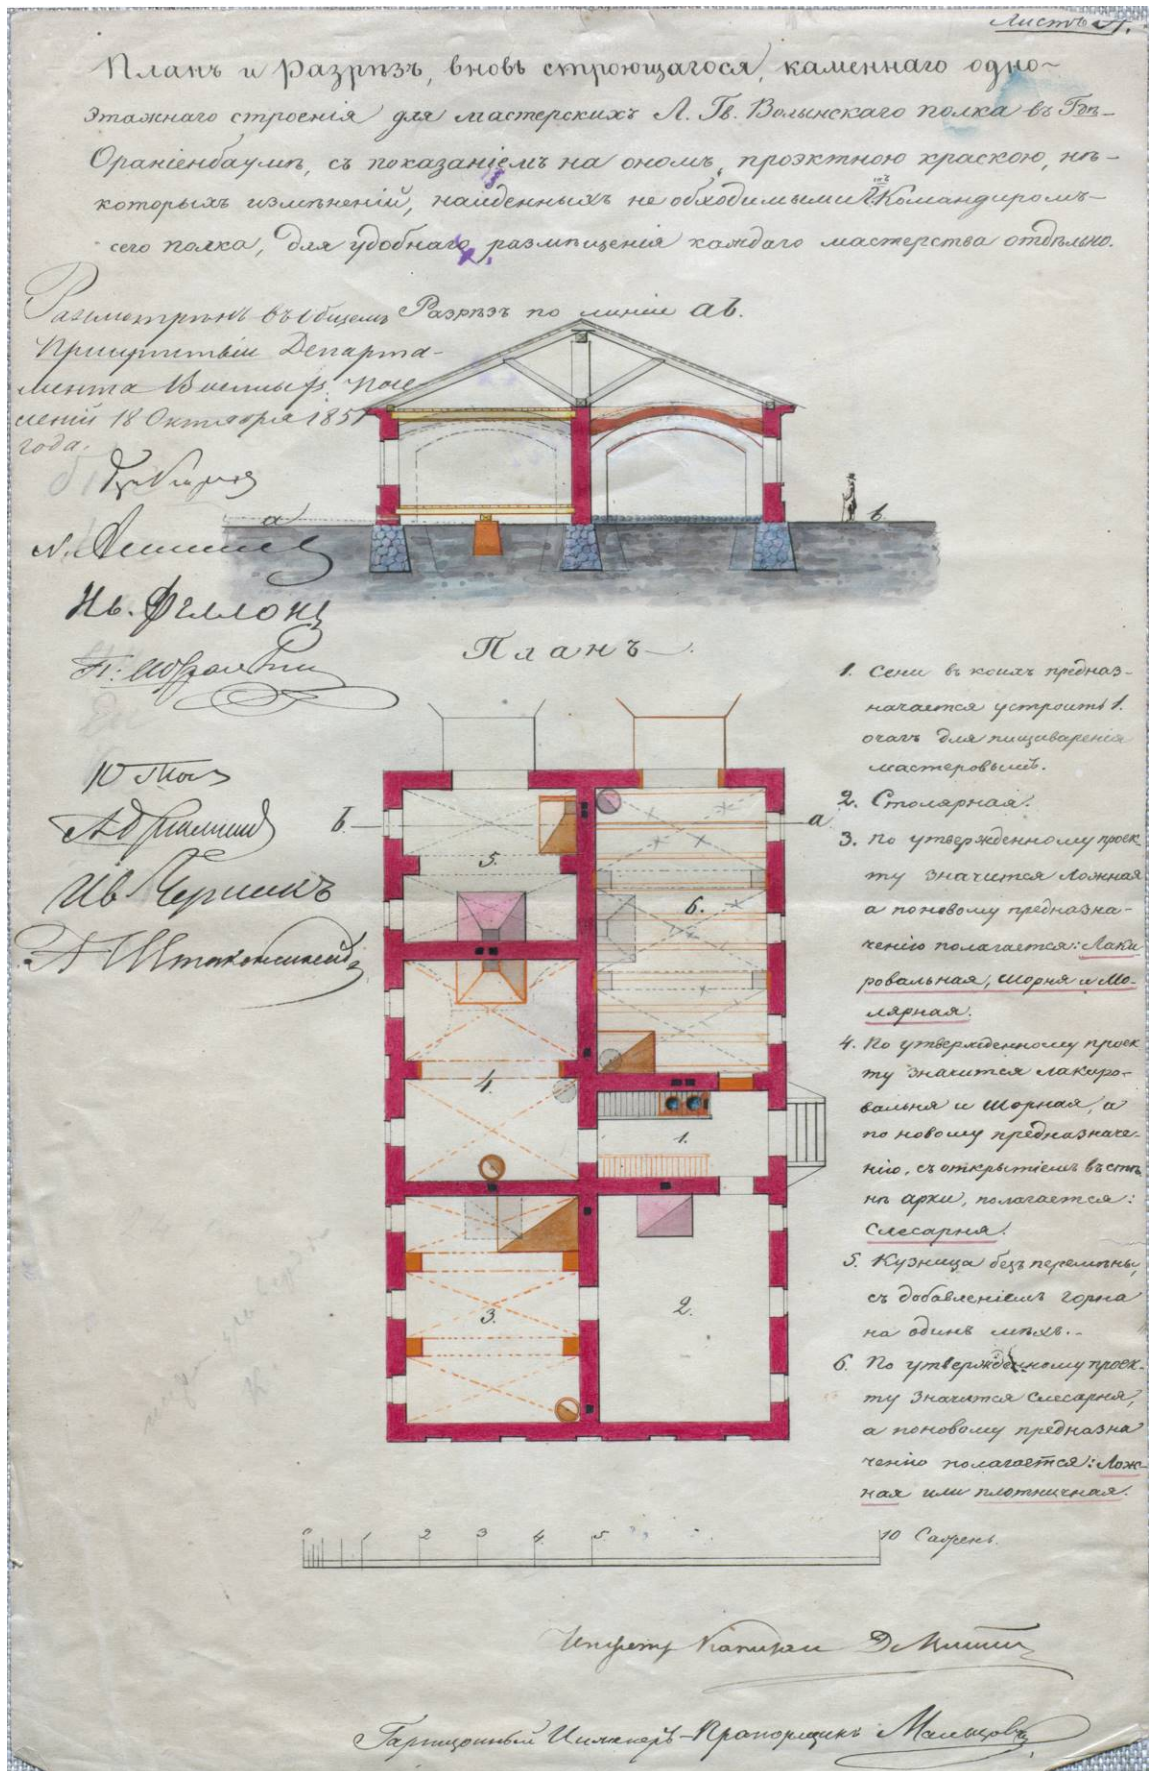 Листъ А.
Планъ и Разрѣзъ, вновь строющагося, каменнаго одно-
этажнаго строенія для мастерскихъ Л. Гв. Волынскаго полка въ Гдѣ-
Ораніенбаумѣ, съ показаніемъ на ономъ, проэктною краскою, нѣ-
которыхъ измѣненій, найденныхъ необходимыми Г. Командиромъ-
сего полка, для удобнаго размѣщенія каждаго мастерства отдѣльно.
Разсмотрѣнъ въ Общемъ
Присутствіи Департа-
мента Военныхъ Посе-
леній 18 Октября 185
года.
Разрѣзъ по линіи ав.
а
в.
Ив. Феллонъ
Планъ.
Ив Черникъ
А Штакеншнейд
в.
а
5.
6.
4.
1.
3.
2.
1. Сени въ коихъ предназ-
начается устроить 1.
очагъ для пищеваренія
мастеровымъ.
2. Столярная.
3. по утвержденному проек
ту значится Ложная
а по новому предназна-
ченію полагается: Лаки
ровальная, шорня и Мо-
лярная.
4. По утвержденному проек
ту значится лакиро-
вальня и Шорная, а
по новому предназначе-
нію, съ открытіемъ въ стѣ
нѣ арки, полагается:
Слесарня.
5. Кузница безъ перемѣны,
съ добавленіемъ горна
на одинъ мѣхъ.
6. По утвержденному проек-
ту значится Слесарня,
а по новому предназна
ченію полагается: Лож-
ная или плотничная.
0 1 2 3 4 5 10 Сажень.
Капитан
Гарнизонный Инженеръ-Прапорщикъ Мальцовъ